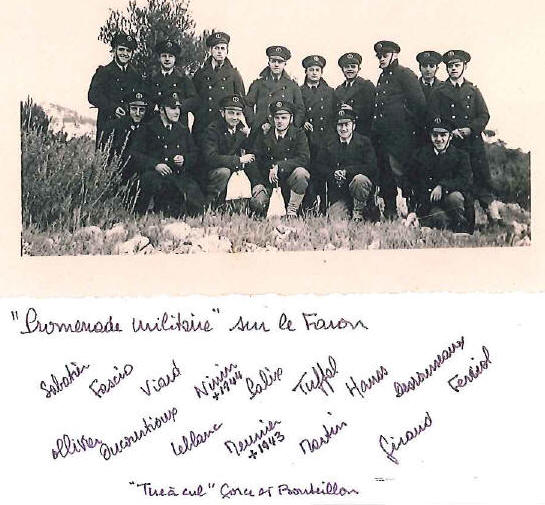 "Promenade militaire" sur le Faron
Sabatier Fascio Viard Ninin Salix Tuffal Hanus Desrousseaux Ferréol
+1944
Ollivier Ducourtioux Leblanc Meunier Martin Giraud
+1943
"Tire à cul" Gorce et Bouteillon